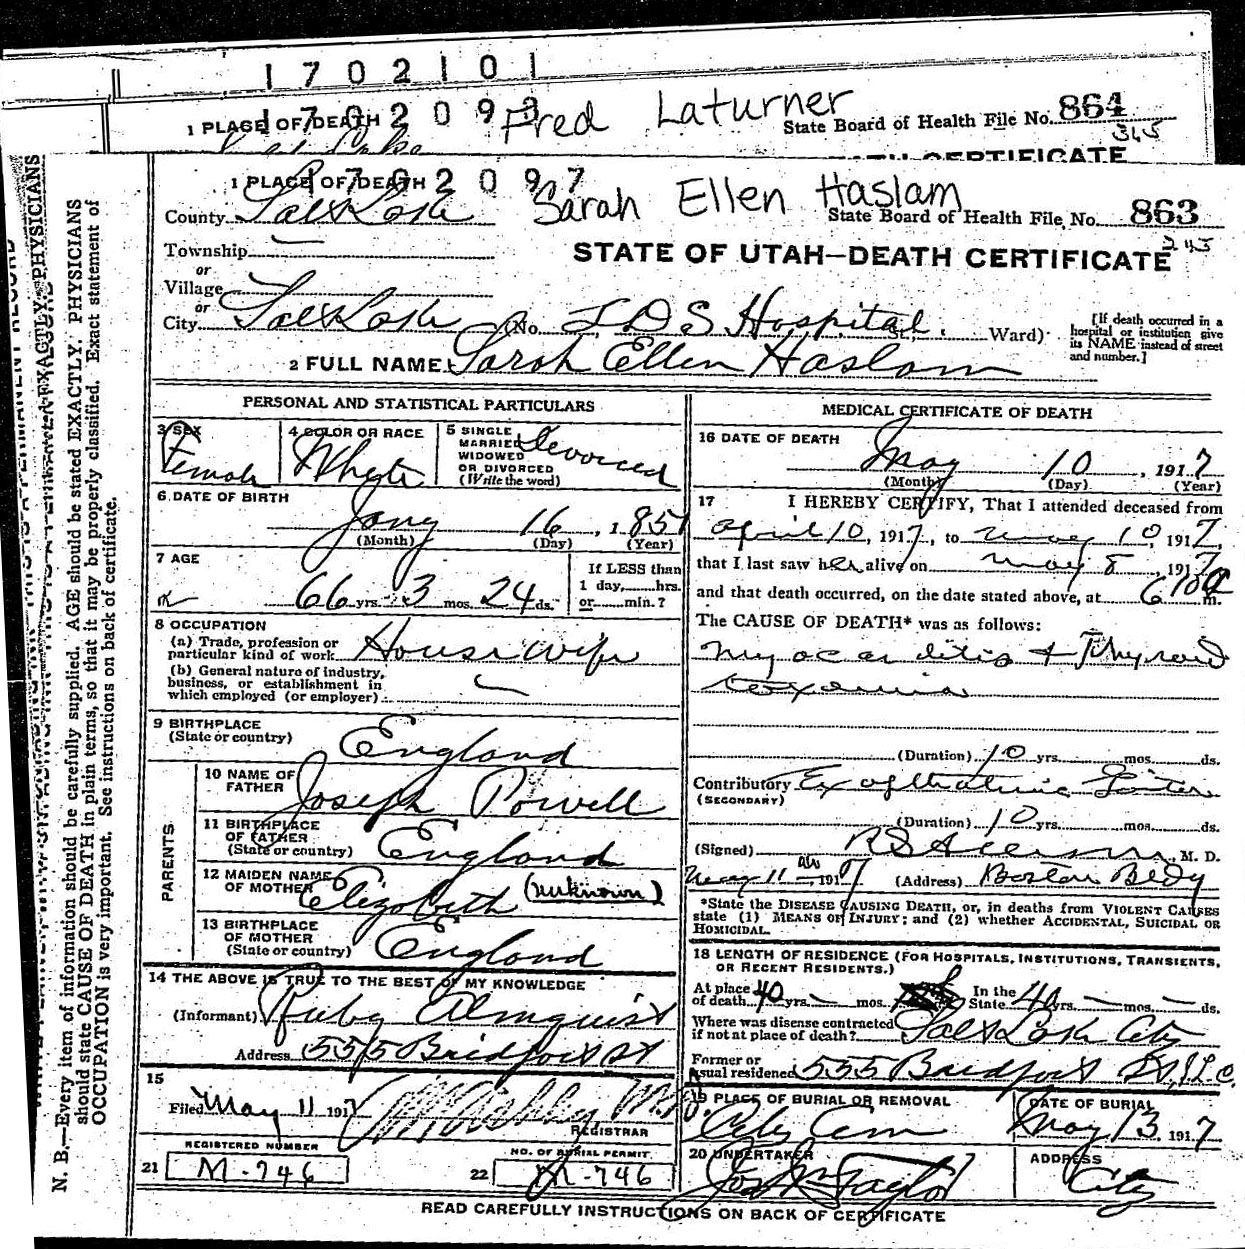 1702101
1702099
1 PLACE OF DEATH
Fred Laturner
State Board of Health File No. 864
345
DEATH CERTIFICATE
1702097
1 PLACE OF DEATH
Sarah Ellen Haslam
County Salt Lake
State Board of Health File No. 863
345
Township
STATE OF UTAH—DEATH CERTIFICATE
or
Village
or
City Salt Lake (No. L D S Hospital St., Ward)
[If death occurred in a hospital or institution give its NAME instead of street and number.]
2 FULL NAME Sarah Ellen Haslam
PERSONAL AND STATISTICAL PARTICULARS
3 SEX Female
4 COLOR OR RACE White
5 SINGLE MARRIED WIDOWED OR DIVORCED (Write the word) Devorced
6 DATE OF BIRTH
Jany 16, 1851
(Month) (Day) (Year)
7 AGE
66 yrs. 3 mos. 24 ds.
If LESS than 1 day, hrs. or min.?
8 OCCUPATION
(a) Trade, profession or particular kind of work Housewife
(b) General nature of industry, business, or establishment in which employed (or employer)
9 BIRTHPLACE (State or country) England
PARENTS
10 NAME OF FATHER Joseph Powell
11 BIRTHPLACE OF FATHER (State or country) England
12 MAIDEN NAME OF MOTHER Elizabeth (unknown)
13 BIRTHPLACE OF MOTHER (State or country) England
14 THE ABOVE IS TRUE TO THE BEST OF MY KNOWLEDGE
(Informant) Ruby Almquist
Address 555 Bridfort St
15
Filed May 11 1917
REGISTRAR
REGISTERED NUMBER
NO. OF BURIAL PERMIT
21 M-746
22 M-746
MEDICAL CERTIFICATE OF DEATH
16 DATE OF DEATH
May 10, 1917
(Month) (Day) (Year)
17 I HEREBY CERTIFY, That I attended deceased from
April 10, 1917, to May 10, 1917,
that I last saw her alive on May 8, 1917
and that death occurred, on the date stated above, at 610 P m.
The CAUSE OF DEATH* was as follows:
Myocarditis + Thyroid
toxemia
(Duration) 10 yrs. mos. ds.
Contributory Exopthalmic Goiter
(SECONDARY)
(Duration) 10 yrs. mos. ds.
(Signed) M. D.
May 11, 1917 (Address) Boston Bldg
*State the DISEASE CAUSING DEATH, or, in deaths from VIOLENT CAUSES
state (1) MEANS OF INJURY; and (2) whether ACCIDENTAL, SUICIDAL OR
HOMICIDAL.
18 LENGTH OF RESIDENCE (FOR HOSPITALS, INSTITUTIONS, TRANSIENTS,
OR RECENT RESIDENTS.)
At place of death 40 yrs. — mos. In the State 40 yrs. — mos. — ds.
Where was disease contracted if not at place of death? Salt Lake City
Former or usual residence 555 Bridfort St, S.L.C.
19 PLACE OF BURIAL OR REMOVAL City Cem
DATE OF BURIAL May 13, 1917
20 UNDERTAKER Jos Wm Taylor
ADDRESS City
READ CAREFULLY INSTRUCTIONS ON BACK OF CERTIFICATE
N. B.—Every item of information should be carefully supplied. AGE should be stated EXACTLY. PHYSICIANS
should state CAUSE OF DEATH in plain terms, so that it may be properly classified. Exact statement of
OCCUPATION is very important. See instructions on back of certificate.